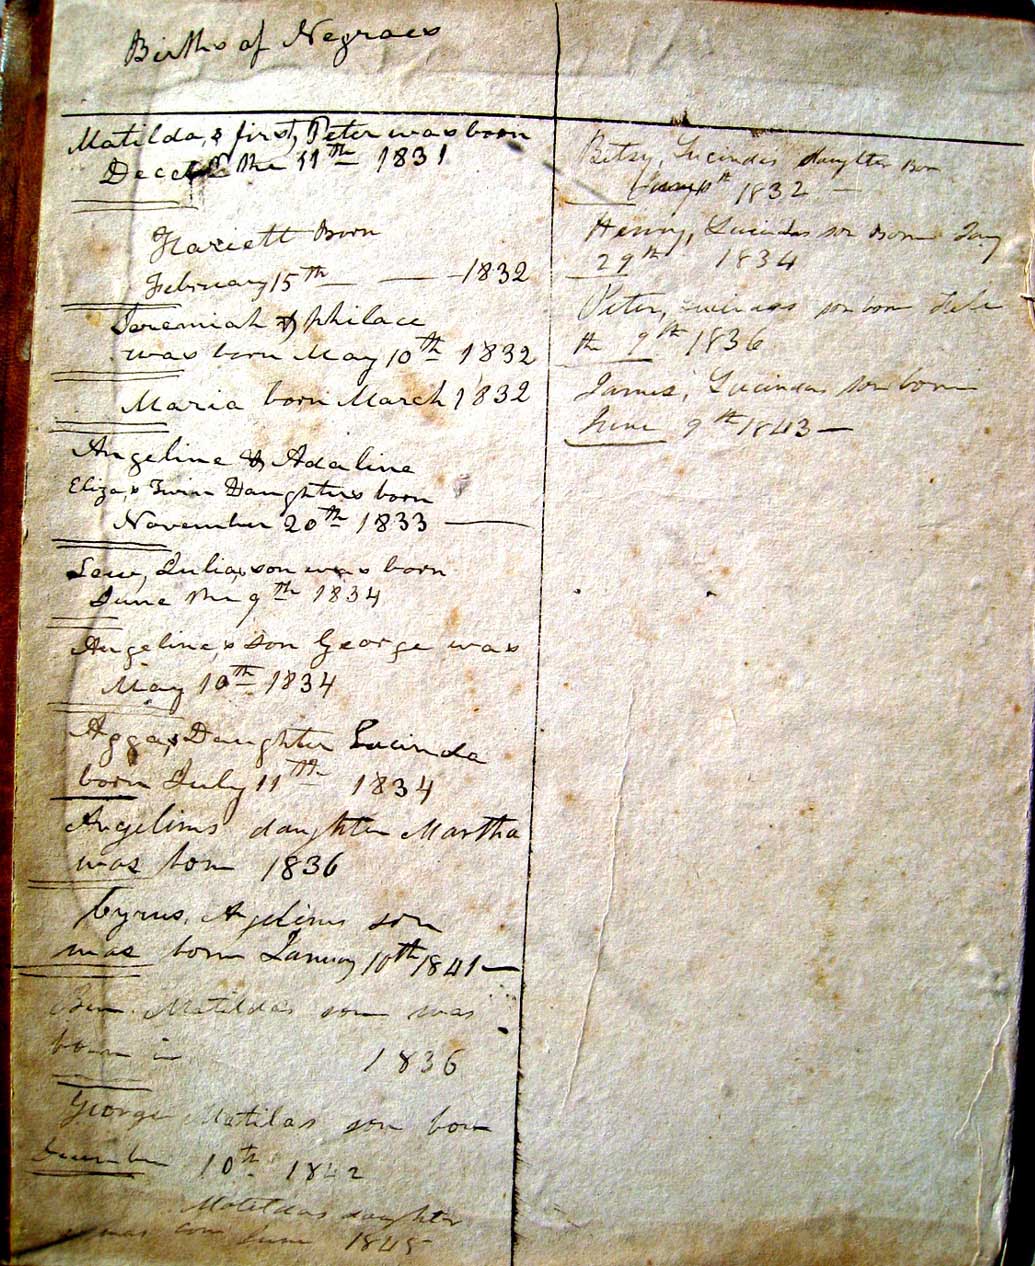 Births of Negroes
Matilda,s first, Peter was born
the 11th 1831
Hariett Born
February 15th 1832
Jeremiah & Philace
was born May 10th 1832
Maria born March 1832
Angeline & Adaline
Eliza,s Twin Daughters born
November 20th 1833
Lew, Julia,s son was born
June the 9th 1834
Angeline,s son George was
May 10th 1834
Agga,s Daughter Lucinda
born July 11th 1834
Angelins daughter Martha
was born 1836
Cyrus, Angelins son
was born January 10th 1841
Ben Matilda's son was
born in 1836
George Matildas son born
December 10th 1842
Matildas daughter
was born June 1845
Betsy, Lucindas daughter Born
1832
Henry, Lucindas son Born
29th 1834
Peter, Lucindas son born
th 9th 1836
James, Lucindas son born
June 9th 1843